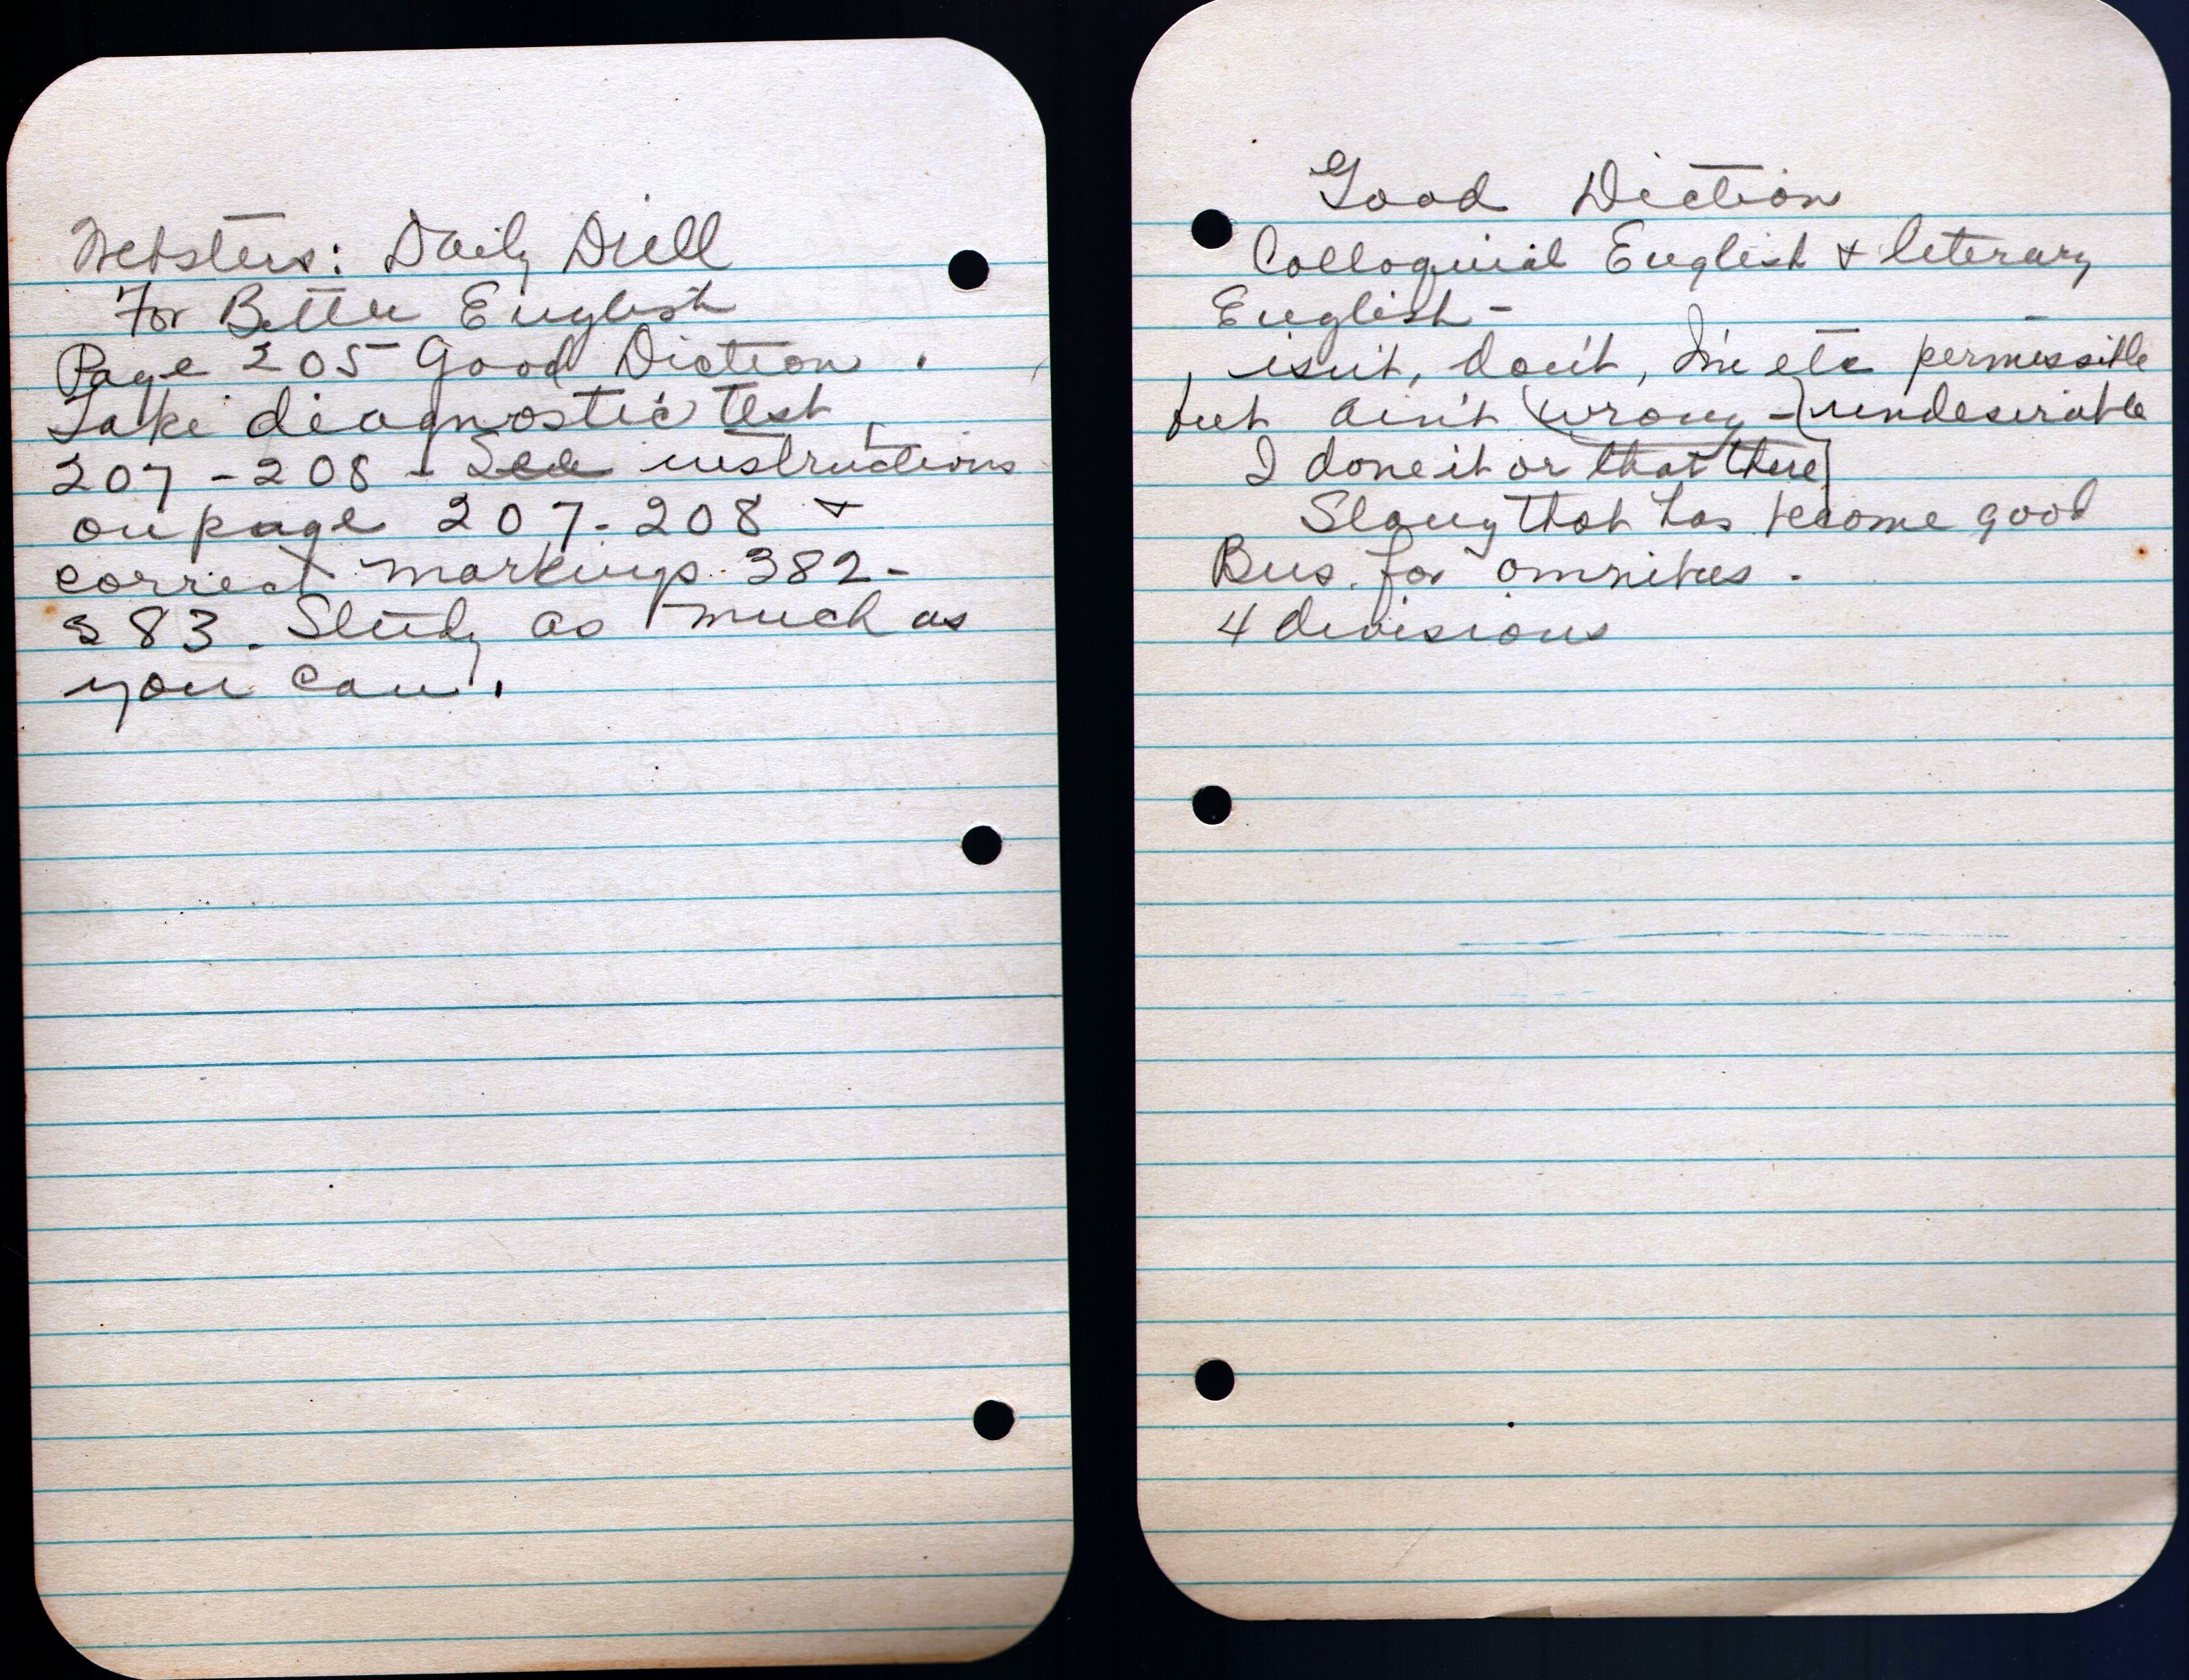 Websters: Daily Drill
For Better English
Page 205 Good Diction.
Take diagnostic test
207-208 - See instructions
on page 207-208 +
correct markings 382-
383. Study as much as
you can.
Good Diction
Colloquial English + literary
English-
, isn't, don't, I'm etc permissible
but ain't (wrong - {undesirable
I done it or that there}
Slang that has become good
Bus. for omnibus.
4 divisions